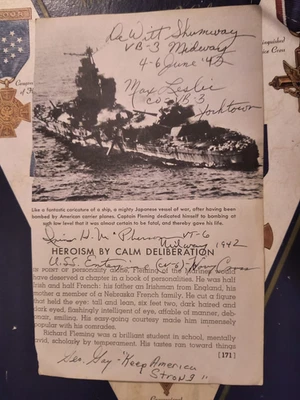 DeWitt Shumway
VB-3 Midway
4-6 June '42
Max Leslie
CO VB-3
Yorktown
Like a fantastic caricature of a ship, a mighty Japanese vessel of war, after having been
bombed by American carrier planes. Captain Fleming dedicated himself to bombing at
such low level that it was almost certain to be fatal, and thereby gave his life.
VT-6
Midway 1942
HEROISM BY CALM DELIBERATION
U.S.S. Enterprise Navy Cross
racter or personality alone, Fleming of the Marines would
have deserved a chapter in a book of personalities. He was half
Irish and half French: his father an Irishman from England, his
mother a member of a Nebraska French family. He cut a figure
that held the eye: tall and lean, six feet two, dark haired and
dark eyed, flashingly intelligent of eye, affable of manner, deb-
onair, smiling. His easy-going courtesy made him immensely
popular with his comrades.
Richard Fleming was a brilliant student in school, mentally
and, scholarly by temperament. His tastes ran toward things
[171]
Geo. Gay - "Keep America
Strong"